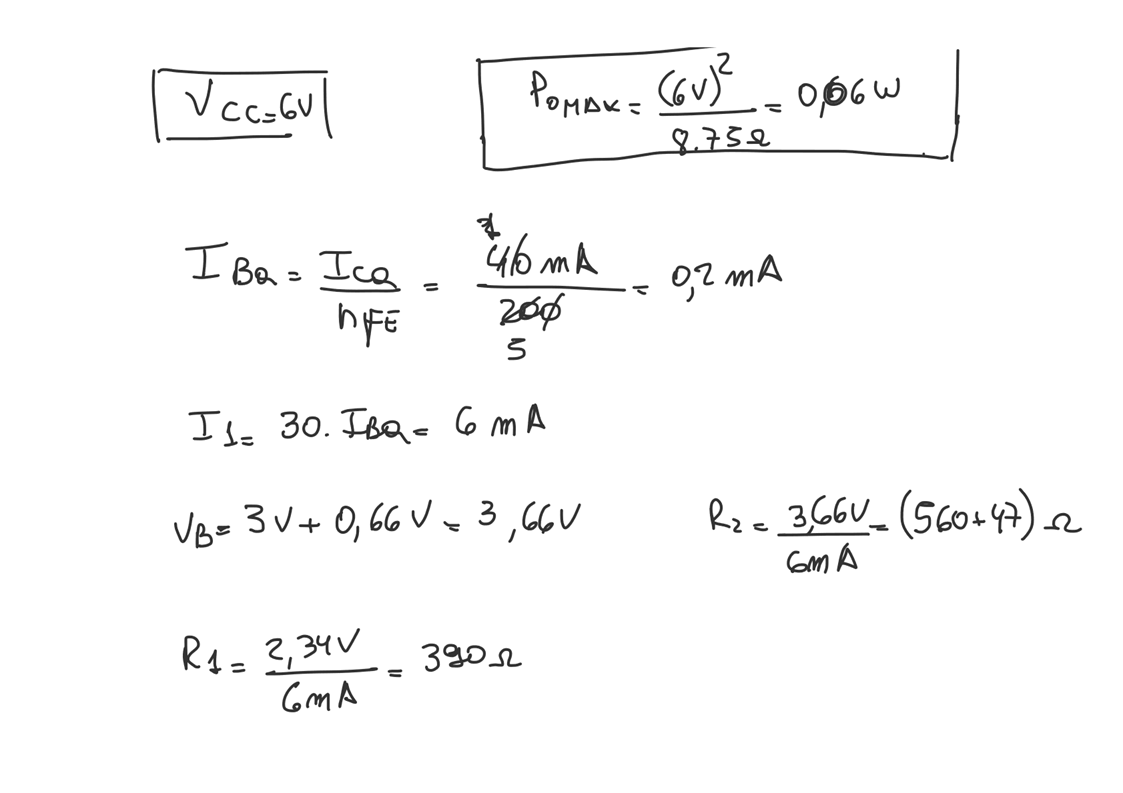 VCC=6V
POMAX = (6V)² / 8.75Ω = 0,06W
IBQ = ICQ / hFE = 40 mA / 200 = 0,2 mA
1
5
I1 = 30. IBQ = 6 mA
VB = 3V + 0,66V = 3,66V
R2 = 3,66V / 6mA = (560+47) Ω
R1 = 2,34V / 6mA = 390Ω